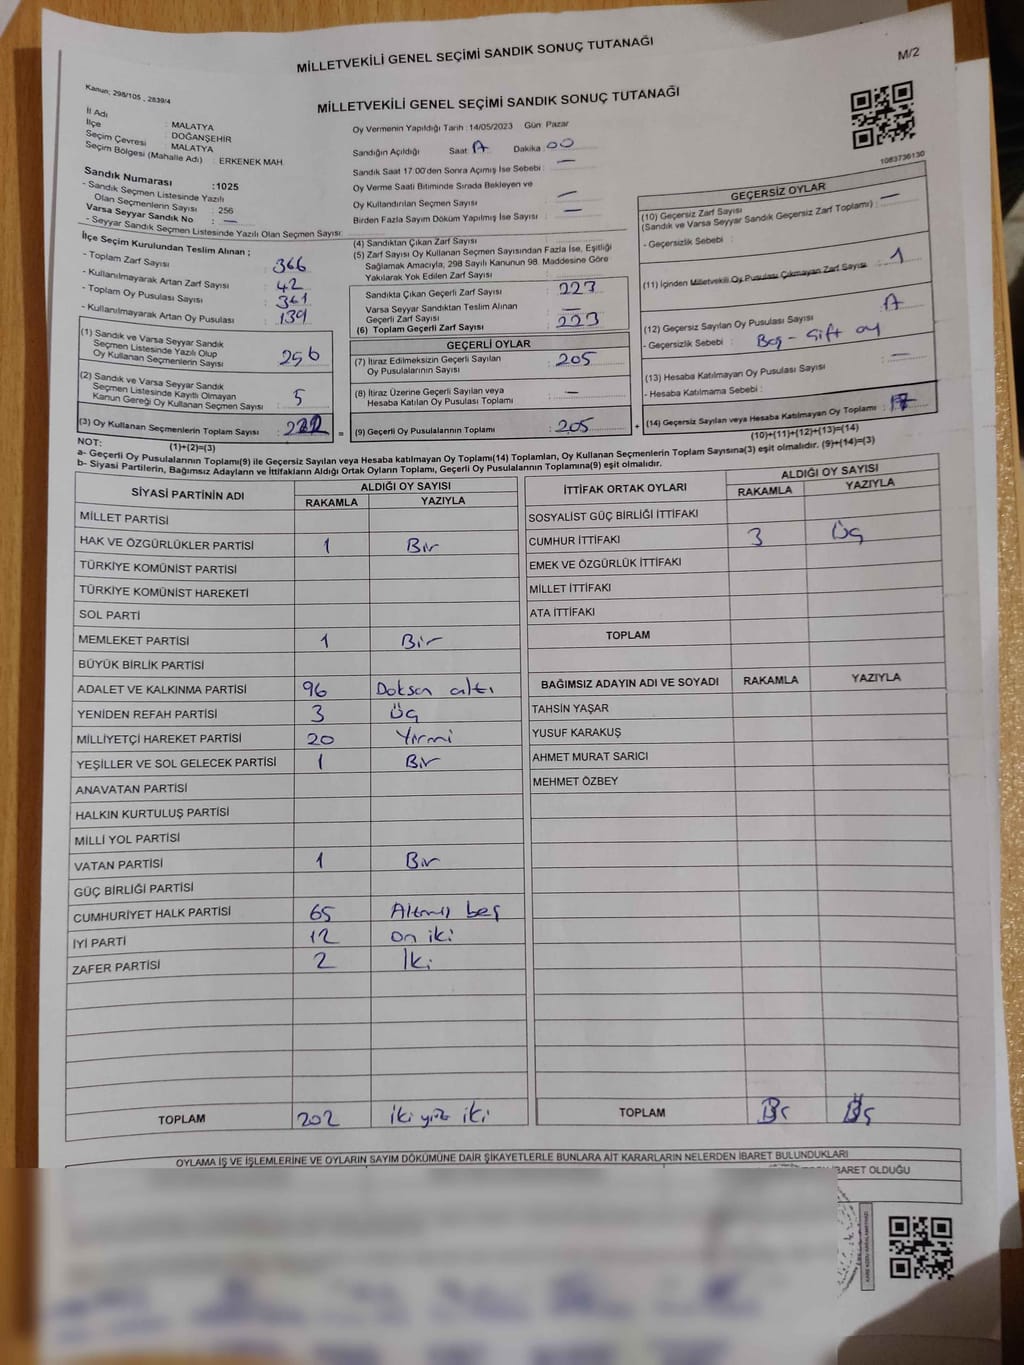 MİLLETVEKİLİ GENEL SEÇİMİ SANDIK SONUÇ TUTANAĞI
M/2
Kanun; 298/105 , 2839/4
MİLLETVEKİLİ GENEL SEÇİMİ SANDIK SONUÇ TUTANAĞI
İl Adı : MALATYA
İlçe : DOĞANŞEHİR
Seçim Çevresi : MALATYA
Seçim Bölgesi (Mahalle Adı) : ERKENEK MAH.
Sandık Numarası :1025
- Sandık Seçmen Listesinde Yazılı
Olan Seçmenlerin Sayısı : 256
Varsa Seyyar Sandık No : —
- Seyyar Sandık Seçmen Listesinde Yazılı Olan Seçmen Sayısı:
Oy Vermenin Yapıldığı Tarih :14/05/2023 Gün: Pazar
Sandığın Açıldığı Saat Dakika 00
Sandık Saat 17.00'den Sonra Açımış İse Sebebi : —
Oy Verme Saati Bitiminde Sırada Bekleyen ve
Oy Kullandırılan Seçmen Sayısı : —
Birden Fazla Sayım Döküm Yapılmış İse Sayısı : —
1083736130
İlçe Seçim Kurulundan Teslim Alınan ;
- Toplam Zarf Sayısı : 366
- Kullanılmayarak Artan Zarf Sayısı : 42
- Toplam Oy Pusulası Sayısı : 361
- Kullanılmayarak Artan Oy Pusulası : 139
(1) Sandık ve Varsa Seyyar Sandık
Seçmen Listesinde Yazılı Olup
Oy Kullanan Seçmenlerin Sayısı : 256
(2) Sandık ve Varsa Seyyar Sandık
Seçmen Listesinde Kayıtlı Olmayan
Kanun Gereği Oy Kullanan Seçmen Sayısı : 5
(3) Oy Kullanan Seçmenlerin Toplam Sayısı :
(1)+(2)=(3)
(4) Sandıktan Çıkan Zarf Sayısı :
(5) Zarf Sayısı Oy Kullanan Seçmen Sayısından Fazla İse, Eşitliği
Sağlamak Amacıyla, 298 Sayılı Kanunun 98. Maddesine Göre
Yakılarak Yok Edilen Zarf Sayısı :
Sandıkta Çıkan Geçerli Zarf Sayısı : 223
Varsa Seyyar Sandıktan Teslim Alınan
Geçerli Zarf Sayısı : —
(6) Toplam Geçerli Zarf Sayısı : 223
GEÇERLİ OYLAR
(7) İtiraz Edilmeksizin Geçerli Sayılan
Oy Pusulalarının Sayısı : 205
(8) İtiraz Üzerine Geçerli Sayılan veya
Hesaba Katılan Oy Pusulası Toplamı : —
= (9) Geçerli Oy Pusulalarının Toplamı : 205
GEÇERSİZ OYLAR
(10) Geçersiz Zarf Sayısı
(Sandık ve Varsa Seyyar Sandık Geçersiz Zarf Toplamı) : —
- Geçersizlik Sebebi :
(11) İçinden Milletvekili Oy Pusulası Çıkmayan Zarf Sayısı : 1
(12) Geçersiz Sayılan Oy Pusulası Sayısı :
- Geçersizlik Sebebi : Boş - Gift oy
(13) Hesaba Katılmayan Oy Pusulası Sayısı : —
- Hesaba Katılmama Sebebi :
+ (14) Geçersiz Sayılan veya Hesaba Katılmayan Oy Toplamı : 17
(10)+(11)+(12)+(13)=(14)
NOT:
a- Geçerli Oy Pusulalarının Toplamı(9) ile Geçersiz Sayılan veya Hesaba katılmayan Oy Toplamı(14) Toplamları, Oy Kullanan Seçmenlerin Toplam Sayısına(3) eşit olmalıdır. (9)+(14)=(3)
b- Siyasi Partilerin, Bağımsız Adayların ve İttifakların Aldığı Ortak Oyların Toplamı, Geçerli Oy Pusulalarının Toplamına(9) eşit olmalıdır.
SİYASİ PARTİNİN ADI ALDIĞI OY SAYISI
RAKAMLA YAZIYLA
MİLLET PARTİSİ
HAK VE ÖZGÜRLÜKLER PARTİSİ 1 Bir
TÜRKİYE KOMÜNİST PARTİSİ
TÜRKİYE KOMÜNİST HAREKETİ
SOL PARTİ
MEMLEKET PARTİSİ 1 Bir
BÜYÜK BİRLİK PARTİSİ
ADALET VE KALKINMA PARTİSİ 96 Doksan altı
YENİDEN REFAH PARTİSİ 3 Üç
MİLLİYETÇİ HAREKET PARTİSİ 20 Yirmi
YEŞİLLER VE SOL GELECEK PARTİSİ 1 Bir
ANAVATAN PARTİSİ
HALKIN KURTULUŞ PARTİSİ
MİLLİ YOL PARTİSİ
VATAN PARTİSİ 1 Bir
GÜÇ BİRLİĞİ PARTİSİ
CUMHURİYET HALK PARTİSİ 65 Altmış beş
İYİ PARTİ 12 on iki
ZAFER PARTİSİ 2 İki
TOPLAM 202 iki yüz iki
İTTİFAK ORTAK OYLARI ALDIĞI OY SAYISI
RAKAMLA YAZIYLA
SOSYALİST GÜÇ BİRLİĞİ İTTİFAKI
CUMHUR İTTİFAKI 3 Üç
EMEK VE ÖZGÜRLÜK İTTİFAKI
MİLLET İTTİFAKI
ATA İTTİFAKI
TOPLAM
BAĞIMSIZ ADAYIN ADI VE SOYADI RAKAMLA YAZIYLA
TAHSİN YAŞAR
YUSUF KARAKUŞ
AHMET MURAT SARICI
MEHMET ÖZBEY
TOPLAM
OYLAMA İŞ VE İŞLEMLERİNE VE OYLARIN SAYIM DÖKÜMÜNE DAİR ŞİKAYETLERLE BUNLARA AİT KARARLARIN NELERDEN İBARET BULUNDUKLARI
İBARET OLDUĞU